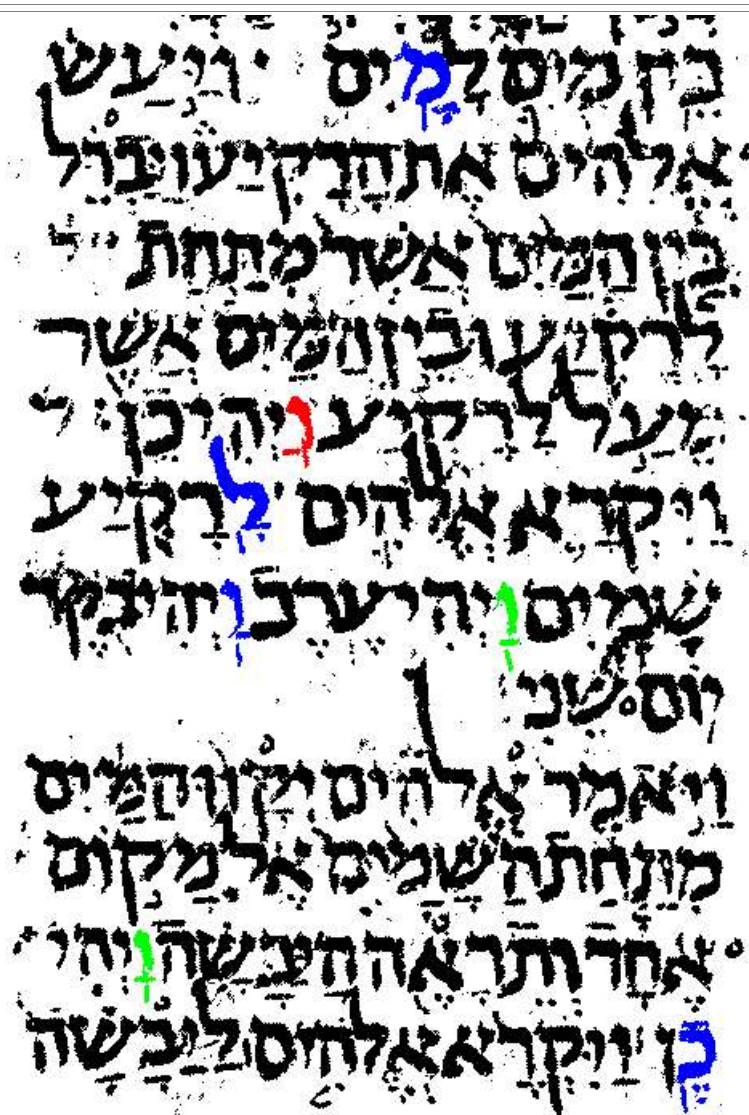 בֵּין מַיִם לָמָיִם וַיַּעַשׂ
אֱלֹהִים אֶת הָרָקִיעַ וַיַּבְדֵּל
בֵּין הַמַּיִם אֲשֶׁר מִתַּחַת
לָרָקִיעַ וּבֵין הַמַּיִם אֲשֶׁר
מֵעַל לָרָקִיעַ וַיְהִי כֵן
וַיִּקְרָא אֱלֹהִים לָרָקִיעַ
שָׁמָיִם וַיְהִי עֶרֶב וַיְהִי בֹקֶר
יוֹם שֵׁנִי
וַיֹּאמֶר אֱלֹהִים יִקָּווּ הַמַּיִם
מִתַּחַת הַשָּׁמַיִם אֶל מָקוֹם
אֶחָד וְתֵרָאֶה הַיַּבָּשָׁה וַיְהִי
כֵן וַיִּקְרָא אֱלֹהִים לַיַּבָּשָׁה